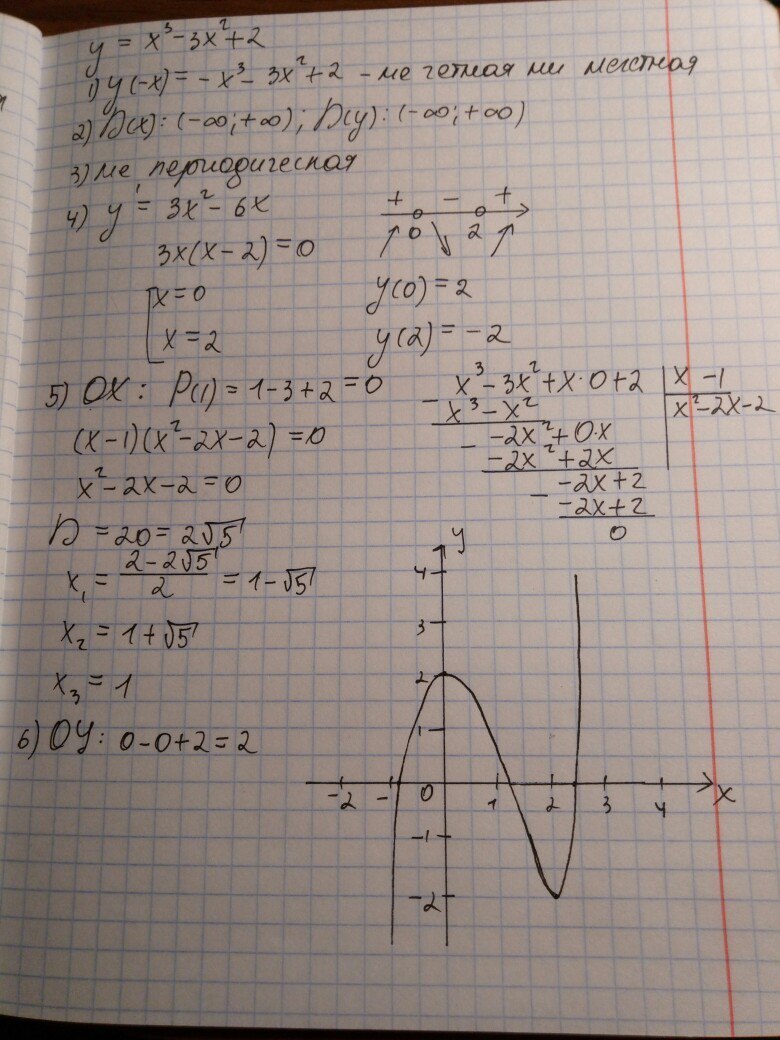 y = x³-3x²+2
1) y(-x) = -x³- 3x²+2 - не четная ни нечетная
2) D(x): (-∞;+∞); D(y): (-∞;+∞)
3) не периодическая
4) y' = 3x²- 6x
3x(x-2)=0
x=0
x=2
+ - +
0 2
y(0)=2
y(2)=-2
5) OX: P(1) = 1-3+2=0
(x-1)(x²-2x-2)=0
x²-2x-2=0
D =20= 2√5
x₁ = (2-2√5)/2 = 1-√5
x₂ = 1+√5
x₃ = 1
6) OY: 0-0+2=2
- x³-3x²+x·0+2 | x -1
x³-x² | x²-2x-2
- -2x²+0·x
-2x²+2x
- -2x+2
-2x+2
0
y
4
3
2
1
-2 - 0 1 2 3 4 x
-1
-2